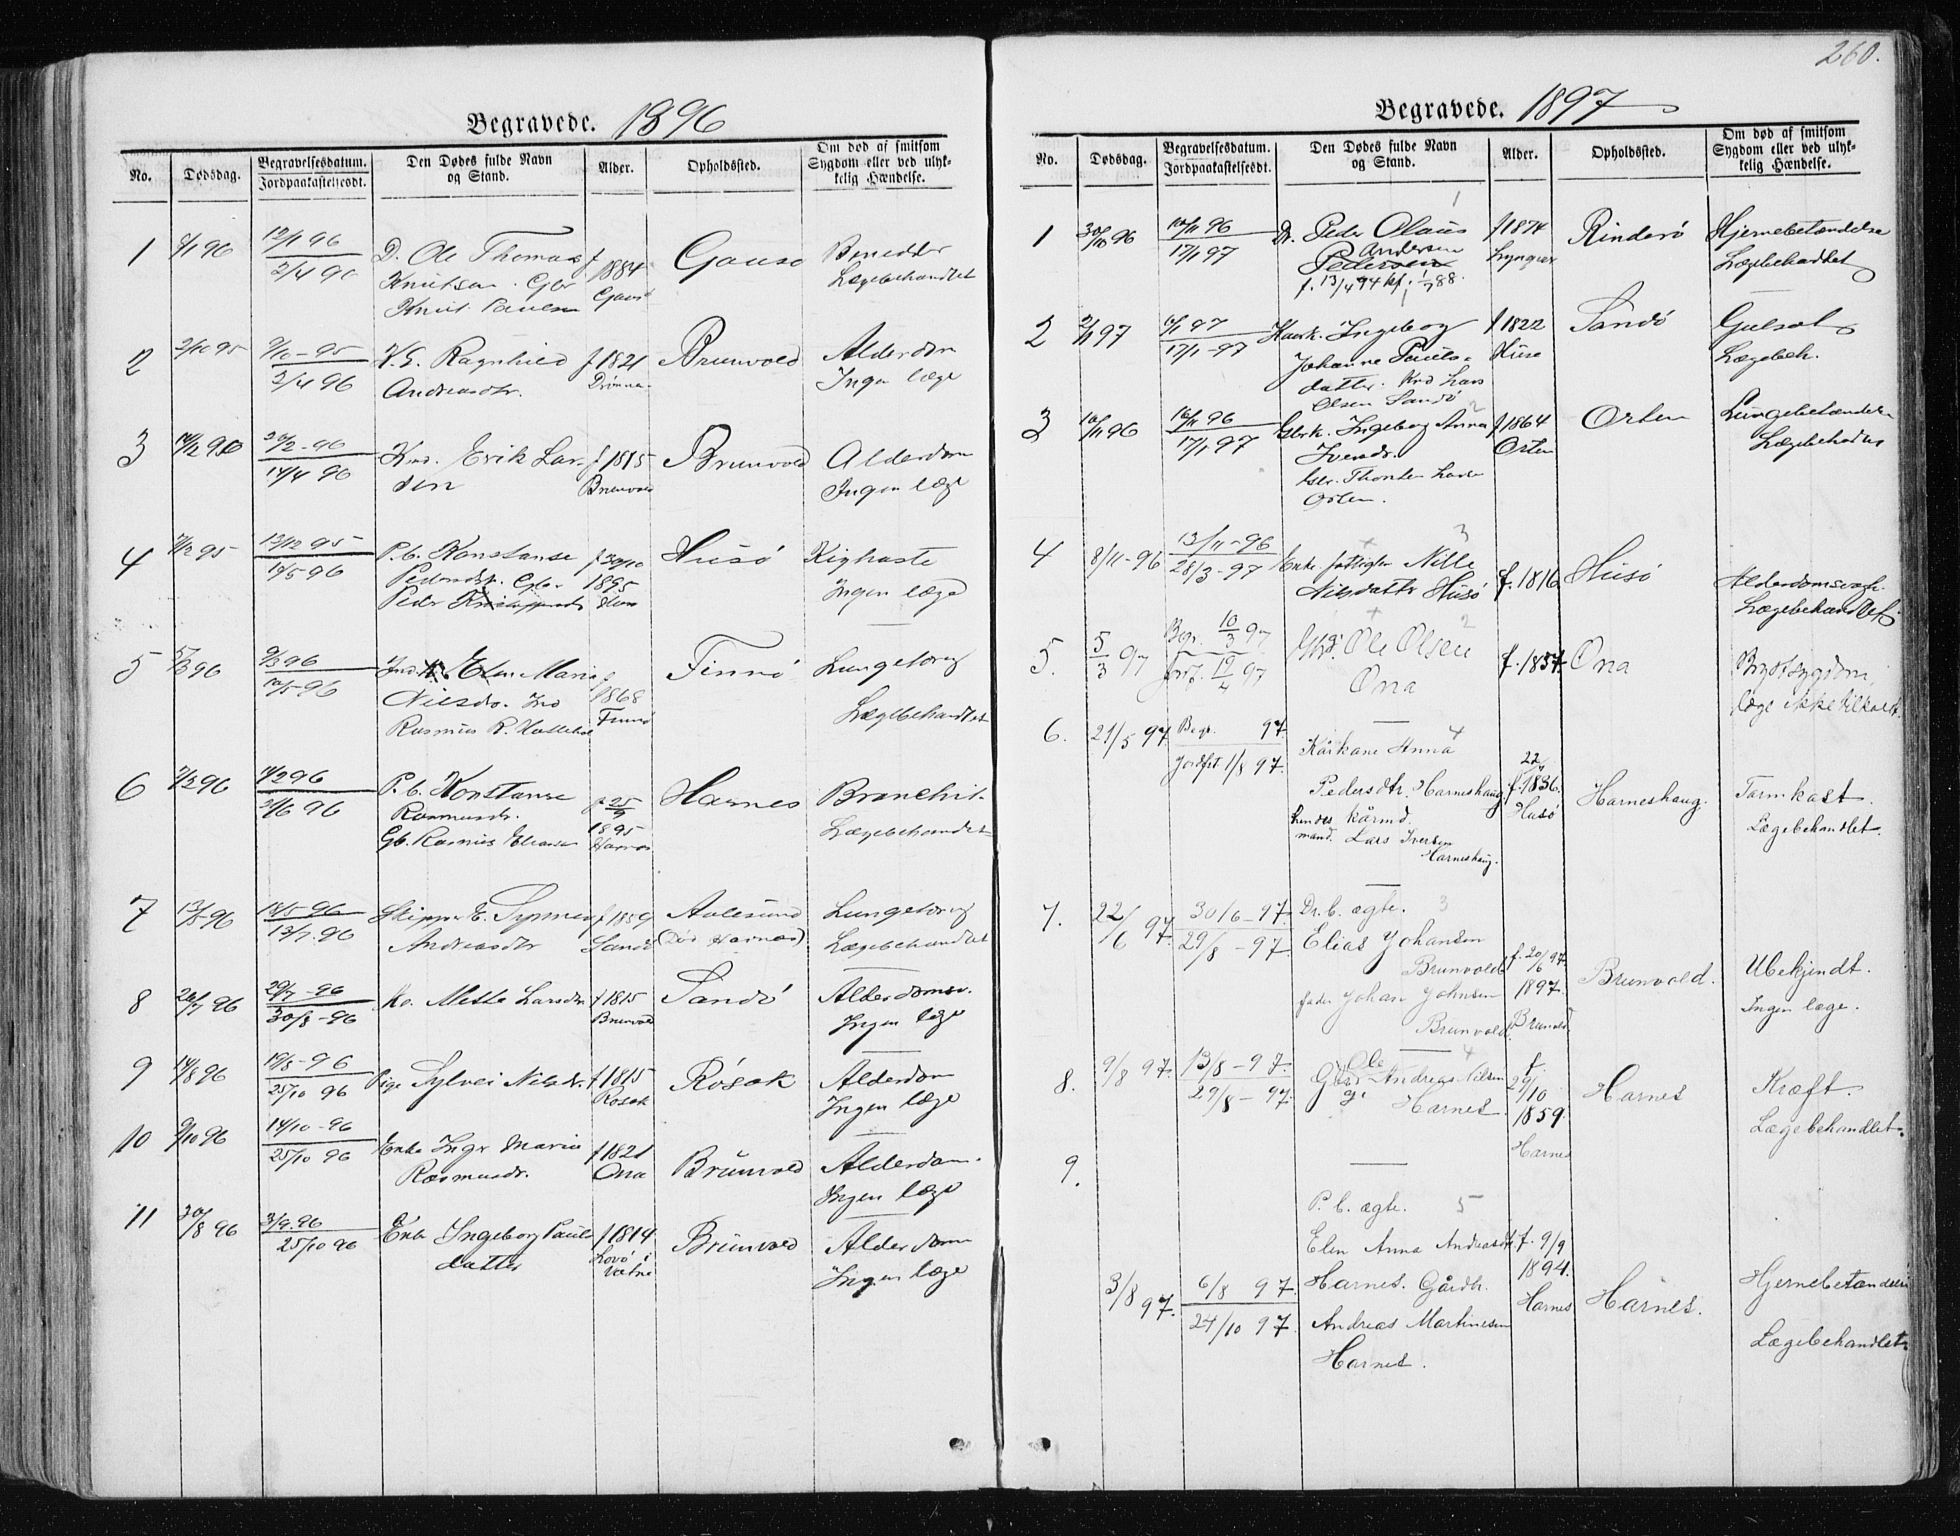 Begravede. 1896
No.
Dødsdag.
Begravelsesdatum.
Jordpaakastelsesdt.
Den Dødes fulde Navn
og Stand.
Alder.
Opholdssted.
Om død af smitsom
Sygdom eller ved ulyk-
kelig Hændelse.
1
D. Ole Thomas
Knutsen. Gbr
Knut Paulsen
f 1884
Gausø
Benedder
Lægebehandlet
2
2/10 95
9/10-95
2/4 96
K. E. Ragnhild
Andreasdtr.
f 1821
Drönna
Brunvold
Alderdom
Ingen læge
3
14/4 96
Knd. Erik Lar-
sen
f 1815
Brunvold
Brunvold
Alderdom
Ingen læge
4
13/12 95
P. b. Konstanse
Pedersdtr. Gbr.
Peder
f 30/10
1895
Husö
Kighoste
Ingen læge
5
5/3 96
9/3 96
10/5-96
Marie
Nilsdr. Ind
Rasmus R.
f
1868
Finnö
Finnö
Lungetæring
Lægebehandlet
6
7/2 96
14/2 96
21/6 96
P. b. Konstanse
Rasmusdr.
Gb. Rasmus
f 25/9
1895
Harnes
Harnes
Bronchit.
Lægebehandlet
7
13/5 96
18/5-96
13/7-96
Skipper E. Synnev
Andreasdtr
f 1859
Sandö
Aalesund
(Död Harnes)
Lungetæring
Lægebehandlet
8
26/7 96
29/7-96
30/8-96
Ko. Mette Larsdtr
f 1815
Brunvold
Sandö
Alderdomsv.
Ingen læge
9
14/8 96
19/8-96
25/10 96
Pige Sylvei Nilsdr.
f 1815
Rösok
Rösok
Alderdom
Ingen læge
10
9/10 96
14/10-96
25/10 96
Enke Inger Marie
Rasmusdr.
f 1821
Ona
Brunvold
Alderdom.
Ingen læge
11
30/8 96
3/9. 96
25/10 96
Enke Ingeborg Pauls
datter
f 1814
Lovö i
Vatne
Brunvold
Alderdom
Ingen læge
260.
Begravede. 1897
No.
Dødsdag.
Begravelsesdatum.
Jordpaakastelsesdt.
Den Dødes fulde Navn
og Stand.
Alder.
Opholdssted.
Om død af smitsom
Sygdom eller ved ulyk-
kelig Hændelse.
1
1
30/10 96
17/1 97
Dr. Peder Olaus
Andersen
Pedersen
f. 13/4 74 kf. 1/7 88.
f 1874
Lyngvær
Rinderö
Hjernebetændelse
Lægebehandlet
2
2/1 97
6/1 97
17/1-97
Ingeborg
Johanne Pauls-
datter. Knd Lars
Olsen Sandö
f 1822
Husö
Sandö
Gulsot
Lægebeh.
2
3
10/11 96
16/11 96
17/1 97
Gbrk. Ingeborg Anna
Iversdr.
Gbr. Thorsten
Orten.
f 1864
Orten
Orten
Lungebetændelse
Lægebehandlet
3
4
8/11-96
13/11-96
28/3-97
Enke fattiglem Nille
Nilsdatter Husö
f. 1816
Husö
Alderdomssvagh.
Lægebehandlet.
2
5.
5/3 97
Begr. 10/3 97
Jordf. 19/4 97
Gbr. Ole Olsen
Ona
f. 1837.
Ona
Brystsygdom,
læge ikke tilkaldt.
4
6.
21/5 97.
Begr. 97
Jordfst 1/8 97.
Kårkone Anna
Pedersdtr. Harneshaug
hendes kårmd.
mand. Lars Iversen
Harneshaug.
22/4
f. 1836.
Husö
Harneshaug.
Tarmkast.
Lægebehandlet.
3
7.
22/6 97.
30/6-97.
29/8-97.
Dr. b. ægte.
Elias Johansen
Brunvold
fader Johan Johnsen
Brunvold.
f. 20/6 97
1897.
Brunvold
Brunvold.
Ubekjendt.
Ingen læge.
4
8.
9/8 97.
13/8-97.
29/8-97.
Ole
Andreas Nilsen
Harnes.
f.
29/10
1859.
Harnes
Harnes
Kræft.
Lægebehandlet.
5
9.
3/8 97.
6/8 97.
24/10 97.
P. b. ægte.
Elen Anna Andreasdtr.
Harnes. Gårdbr.
Andreas Martinusen
Harnes.
f. 9/9
1894.
Harnes
Harnes.
Hjernebetændelse
Lægebehandlet.